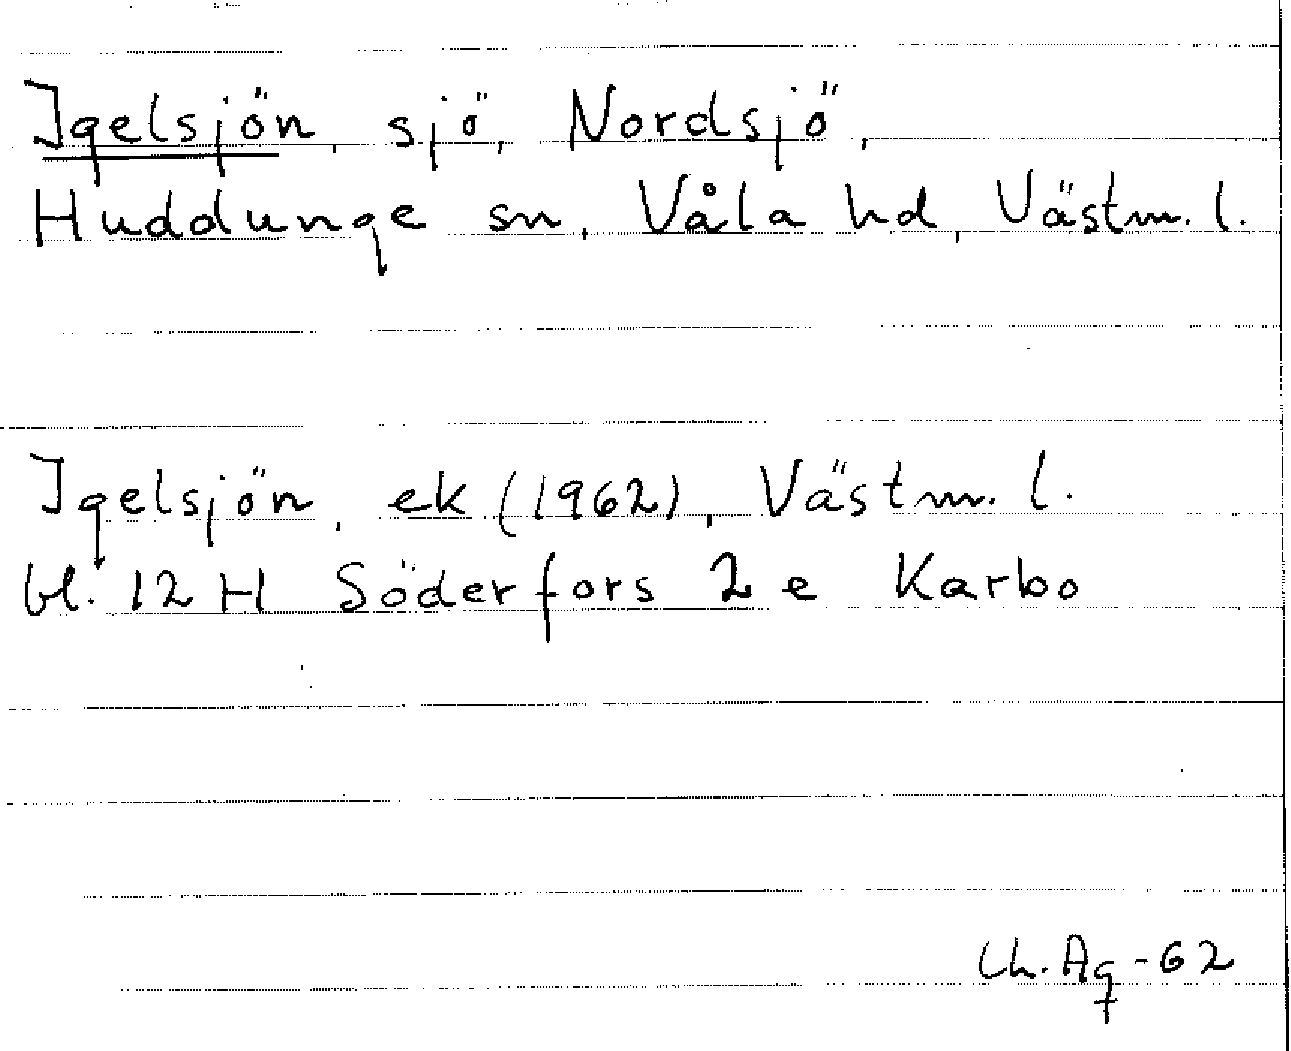 Igelsjön, sjö, Nordsjö,
Huddunge sn, Våla hd, Västm. l.
Igelsjön, ek (1962), Västm. l.
bl. 12 H Söderfors 2 e Karbo
Ch. Ag -62